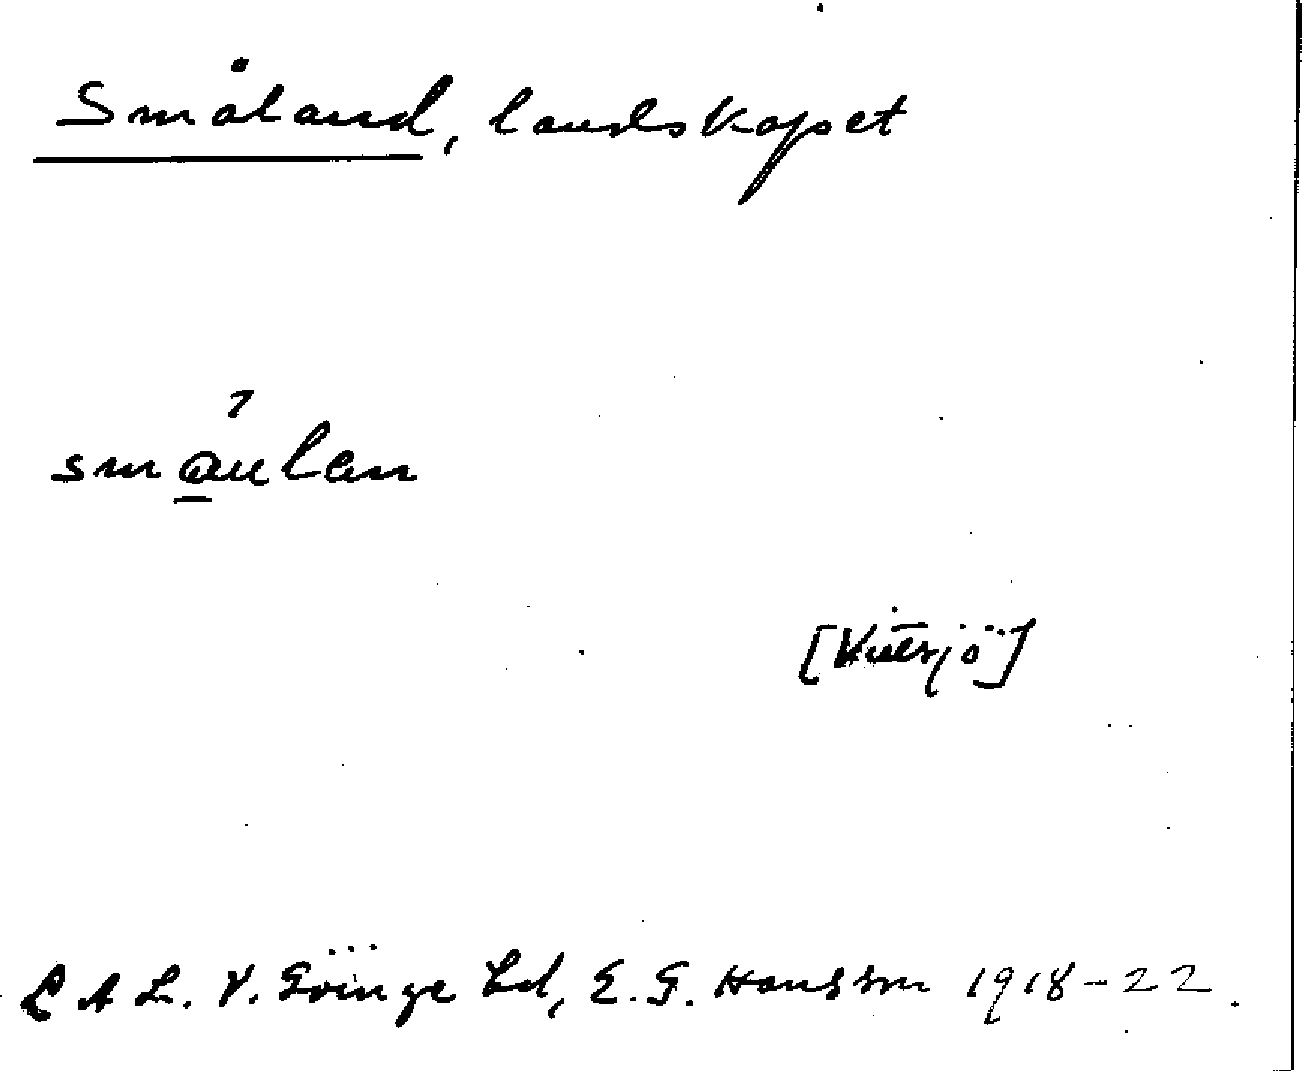 Småland, landskapet
smáulan
[Vittsjö]
LAL. V. Göinge hd, E. G. Hansson 1918-22.